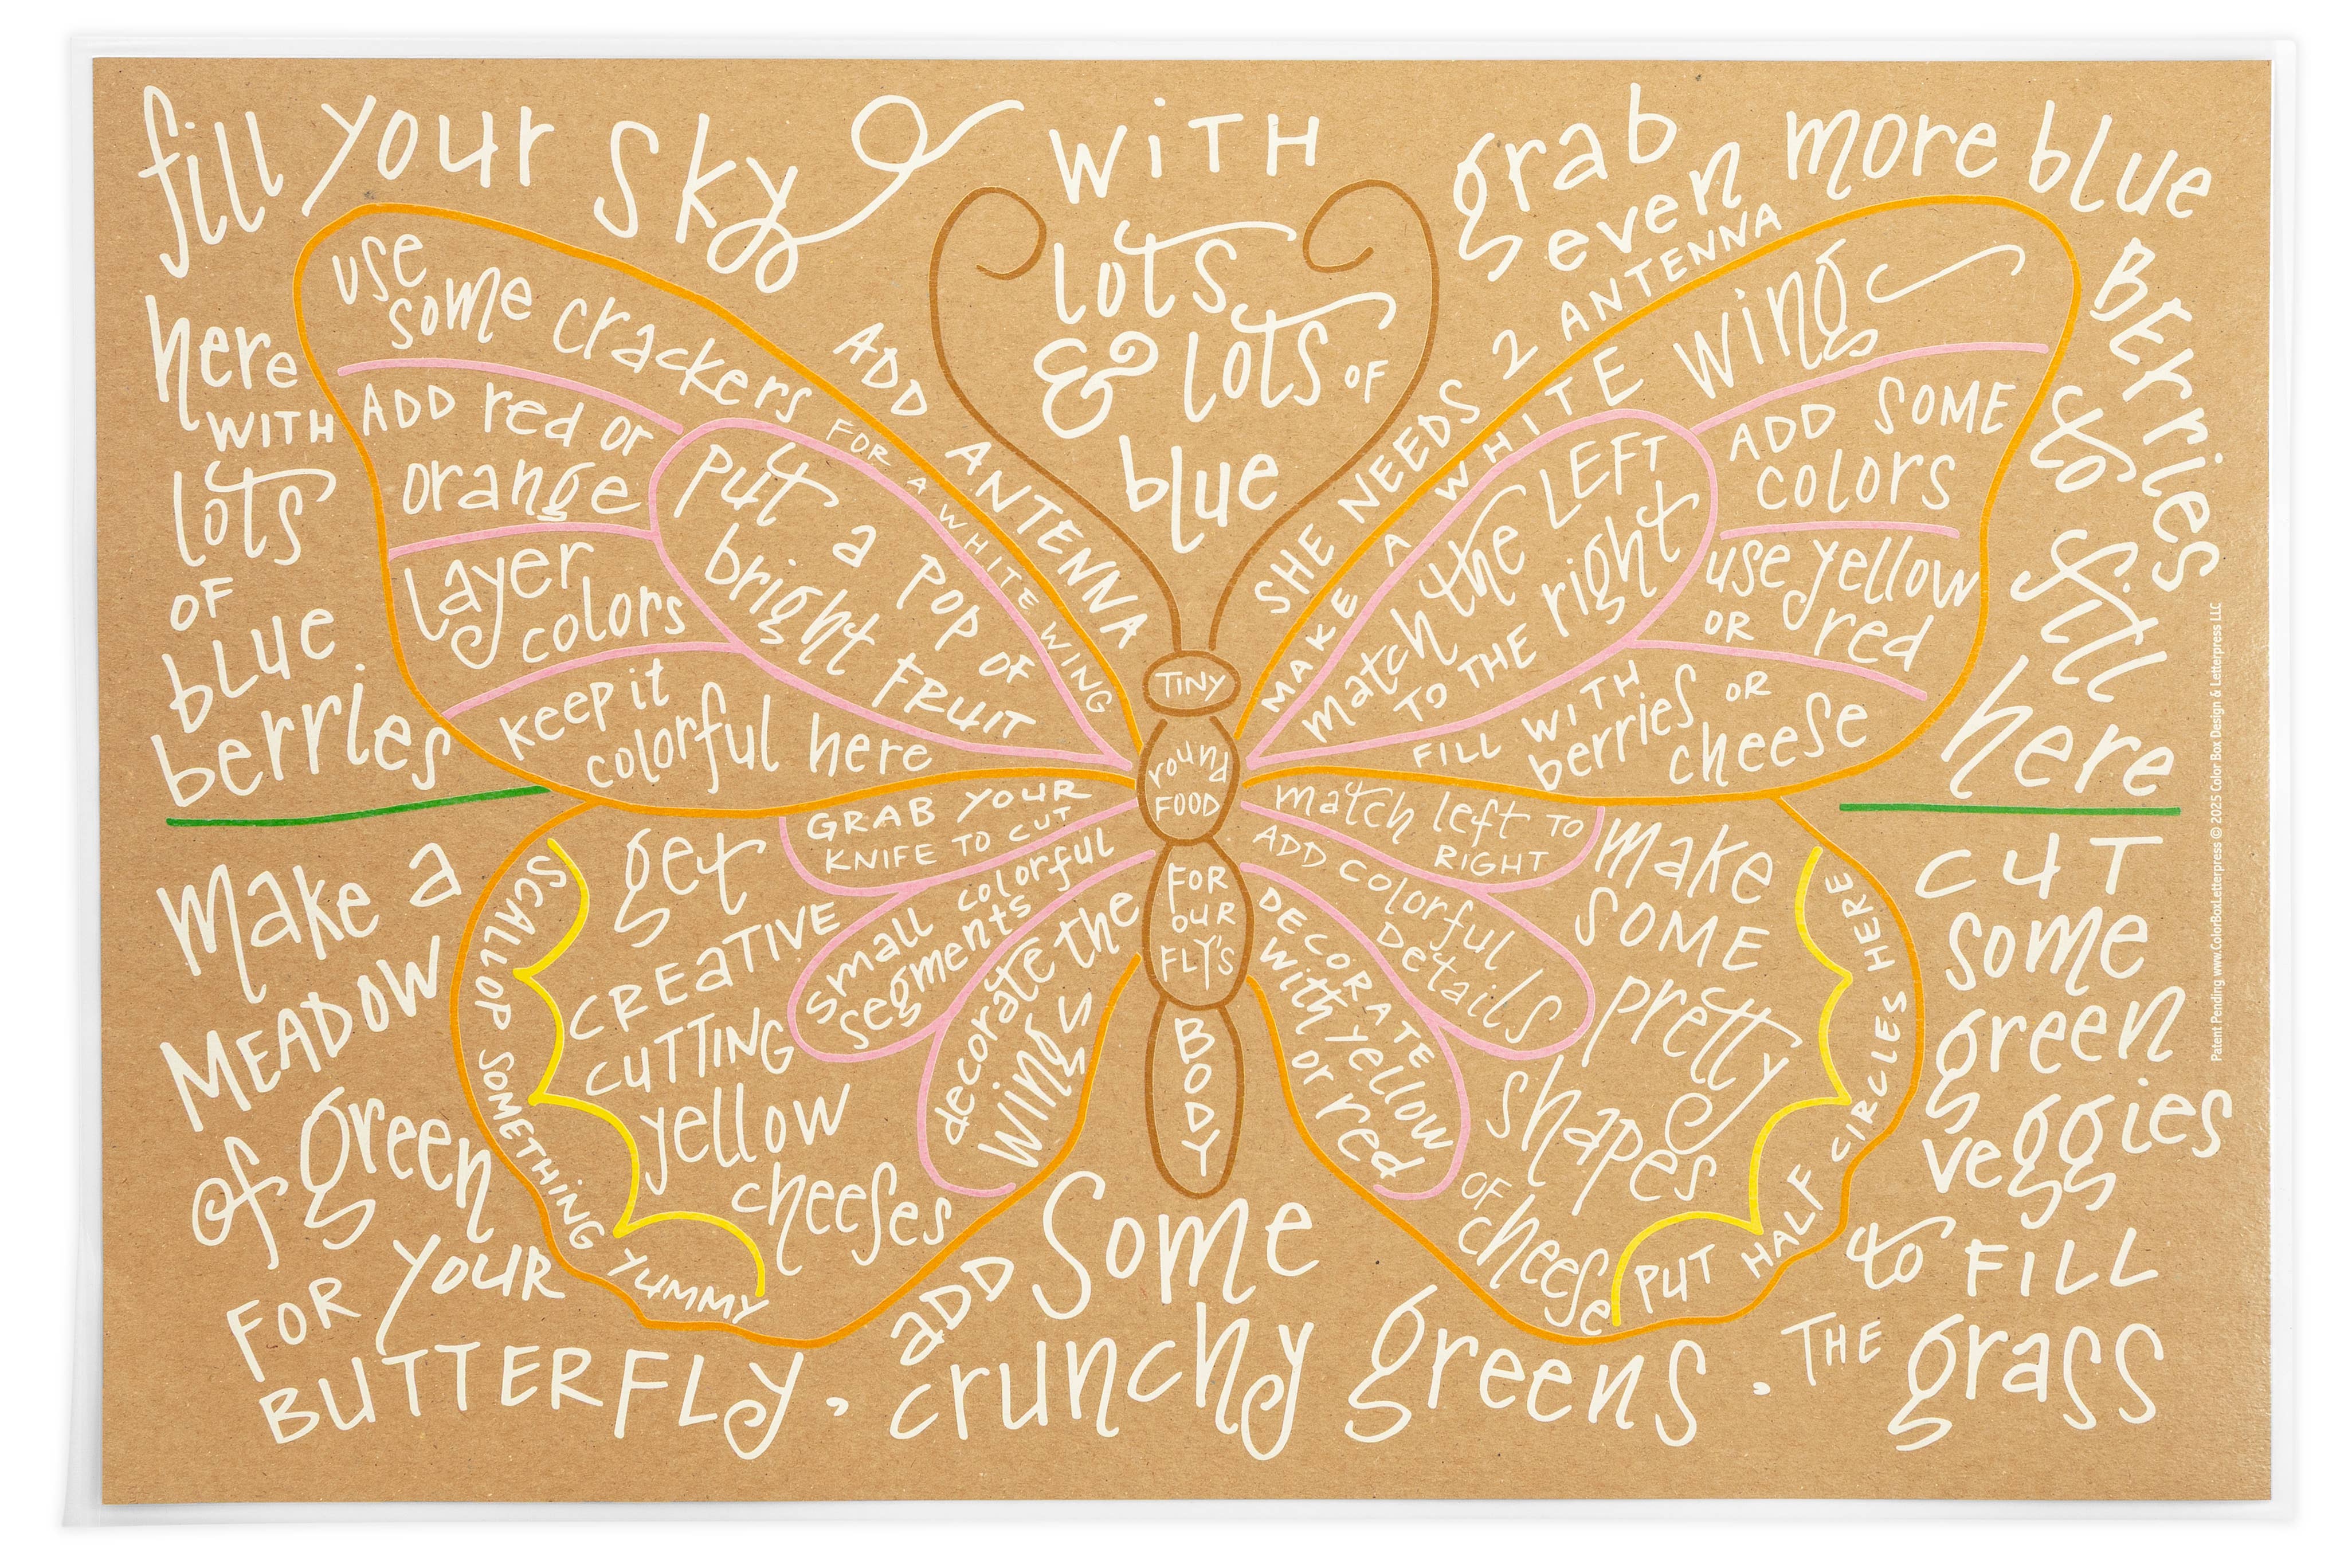 fill your sky
here
WITH
lots
OF
blue
berries
WITH
lots
& lots OF
blue
grab
even more blue
BErries
to fill
here
ADD ANTENNA
SHE NEEDS 2 ANTENNA
use
some crackers FOR A WHITE WING
ADD red or
orange
Layer
colors
keep it
colorful here
put a POP OF
bright FRUIT
MAKE A WHITE wing
match the LEFT
TO THE right
ADD SOME
colors
use yellow
OR red
FILL WITH
berries OR
cheese
TINY
round
FOOD
FOR
OUR
FLY'S
BODY
GRAB YOUR
KNIFE TO CUT
small colorful
segments
decorate the
wings
get
CREATIVE
CUTTING
yellow
cheeses
SCALLOP SOMETHING YUMMY
match left TO
RIGHT
ADD colorful
Details
DECORATE
with yellow
or red
make
SOME
pretty
shapes
OF
cheese
PUT HALF CIRCLES HERE
Make a
MEADOW
of green
FOR YOUR
BUTTERFLY.
ADD Some
crunchy greens.
CUT
some
green
veggies
to FILL
THE grass
Patent Pending www.ColorBoxLetterpress © 2025 Color Box Design & Letterpress LLC